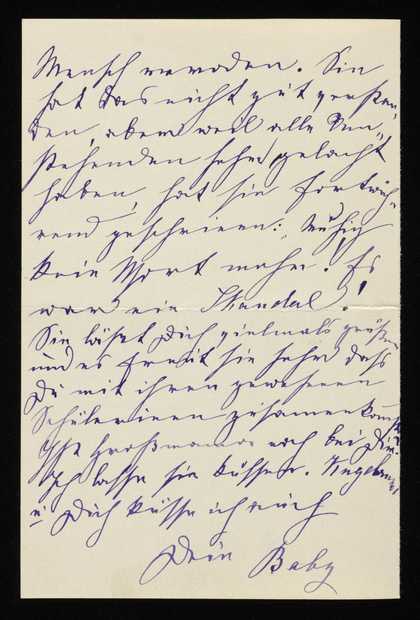 Mensch reroden. Sie
hat das nicht gut verstan-
den, aber weil alle Um-
stehenden sehr gelacht
haben, hat sie fortwäh-
rend geschrieen: Ruhig
kein Wort mehr! Es
war ein Skandal!
Sie läßt Dich vielmals grüßen
und es freut sie sehr dass
Du mit ihren gewesenen
Schülerinen zusamenkomst.
Ist Großmama noch bei Dir.
Ich lasse sie küssen.
u. Dich küsse ich auch
Dein Baby